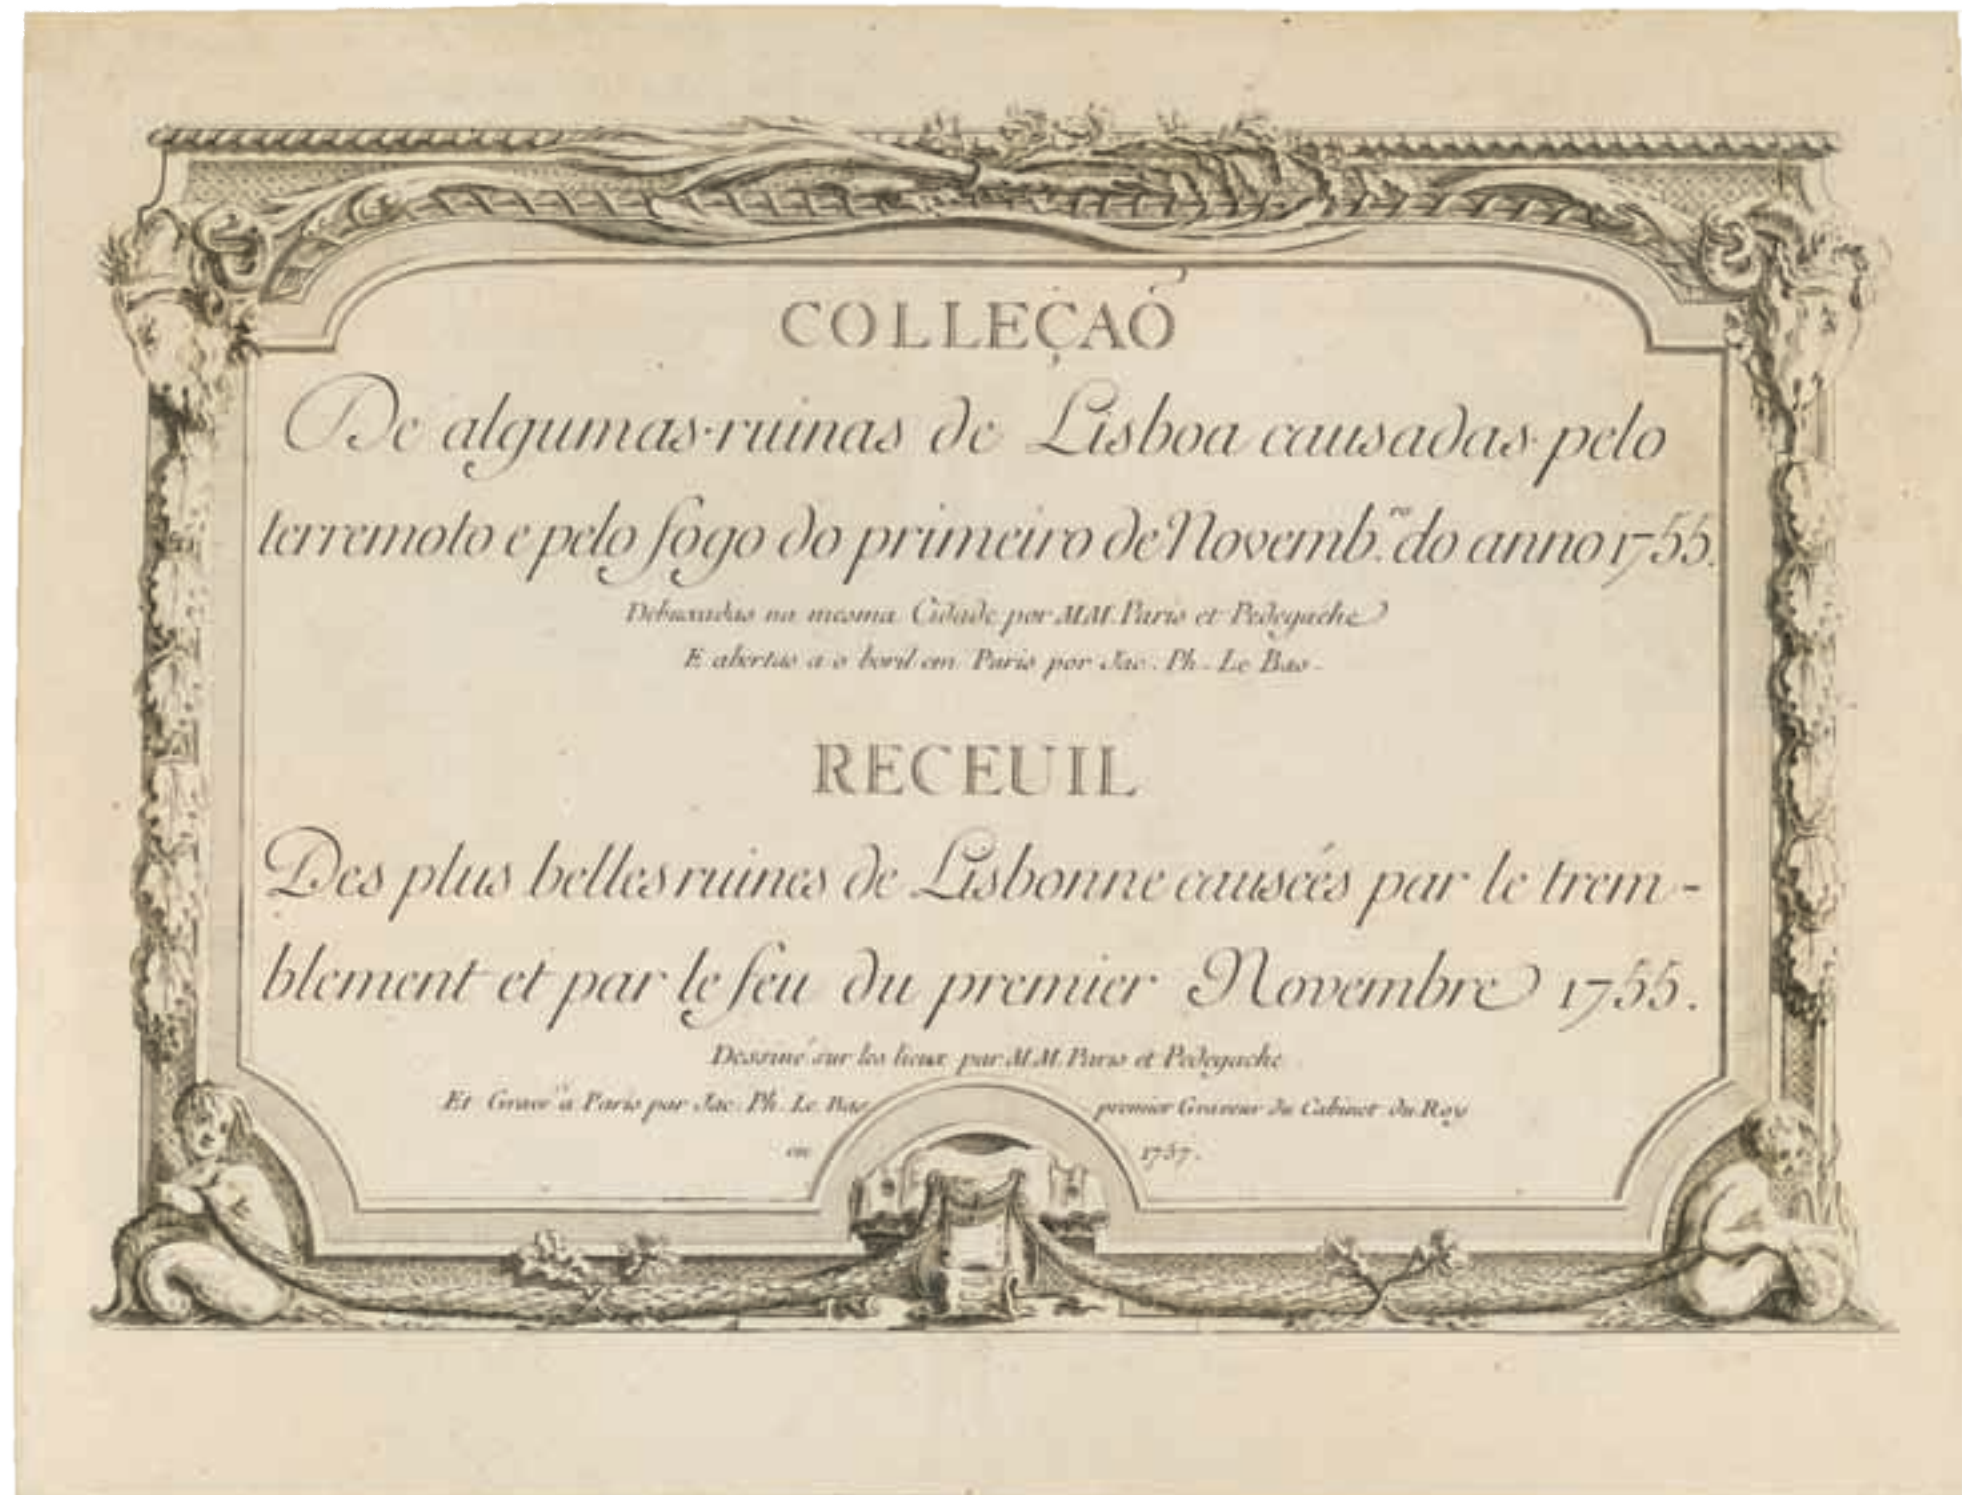 COLLEÇAÕ
De algumas ruinas de Lisboa causadas pelo
terremoto e pelo fogo do primeiro de Novemb.ro do anno 1755.
Debuxadas na mesma Cidade por MM. Paris et Pedegache
E abertas a o boril em Paris por Jac. Ph. Le Bas.
RECEUIL
Des plus belles ruines de Lisbonne causées par le trem-
blement et par le feu du premier Novembre 1755.
Dessiné sur les lieux par M.M. Paris et Pedegache
Et Gravé à Paris par Jac. Ph. Le Bas premier Graveur du Cabinet du Roy
en 1757.